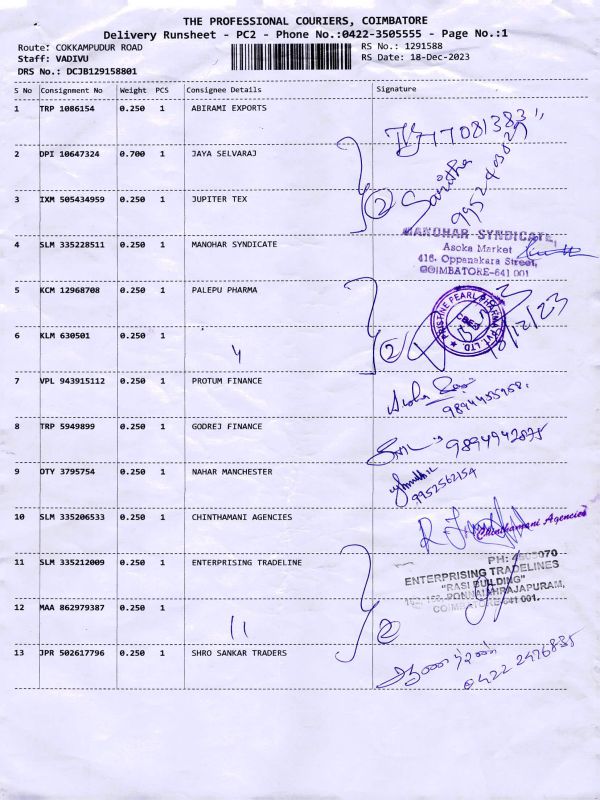 THE PROFESSIONAL COURIERS, COIMBATORE
Delivery Runsheet - PC2 - Phone No.:0422-3505555 - Page No.:1
Route: COKKAMPUDUR ROAD RS No.: 1291588
Staff: VADIVU RS Date: 18-Dec-2023
DRS No.: DCJB129158801
S No Consignment No Weight PCS Consignee Details Signature
1 TRP 1086154 0.250 1 ABIRAMI EXPORTS
2 DPI 10647324 0.700 1 JAYA SELVARAJ
2
3 IXM 505434959 0.250 1 JUPITER TEX
4 SLM 335228511 0.250 1 MANOHAR SYNDICATE
MANOHAR SYNDICATE,
Asoka Market
416, Oppanakara Street,
COIMBATORE-641 001
5 KCM 12968708 0.250 1 PALEPU PHARMA
PRISTINE PEARL PHARMA PVT. LTD.
CBE
18/12/23
6 KLM 630501 0.250 1
11
2
7 VPL 943915112 0.250 1 PROTUM FINANCE
9894455958.
8 TRP 5949899 0.250 1 GODREJ FINANCE
9 OTY 3795754 0.250 1 NAHAR MANCHESTER
9952562154
10 SLM 335206533 0.250 1 CHINTHAMANI AGENCIES
Chinthamani Agencies
11 SLM 335212009 0.250 1 ENTERPRISING TRADELINE
ENTERPRISING TRADELINES
"RASI BUILDING"
COIMBATORE-641 001.
12 MAA 862979387 0.250 1
11
2
13 JPR 502617796 0.250 1 SHRO SANKAR TRADERS
0422 2476835